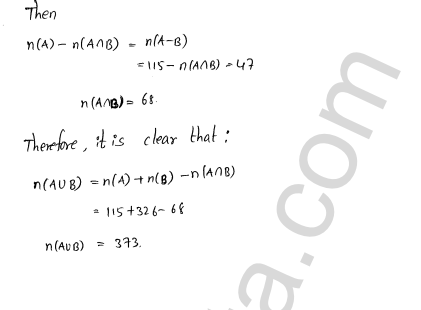 Then
n(A) - n(A∩B) = n(A-B)
= 115 - n(A∩B) = 47
n(A∩B) = 68.
Therefore, it is clear that :
n(A∪B) = n(A) + n(B) - n(A∩B)
= 115 + 326 - 68
n(A∪B) = 373.
a.com